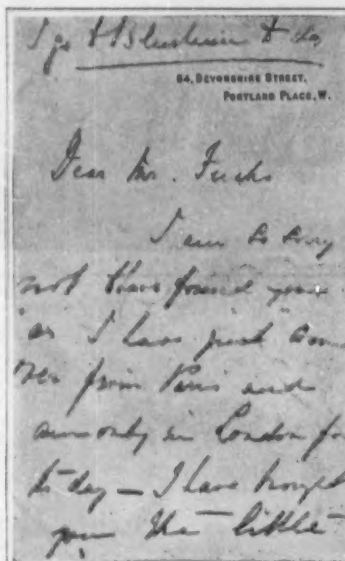 I go to Blenheim to day
64, DEVONSHIRE STREET,
PORTLAND PLACE, W.
Dear Mr. Fuchs
I am so sorry
not to have found you
as I have just come
over from Paris and
am only in London for
to day — I have brought
you the little